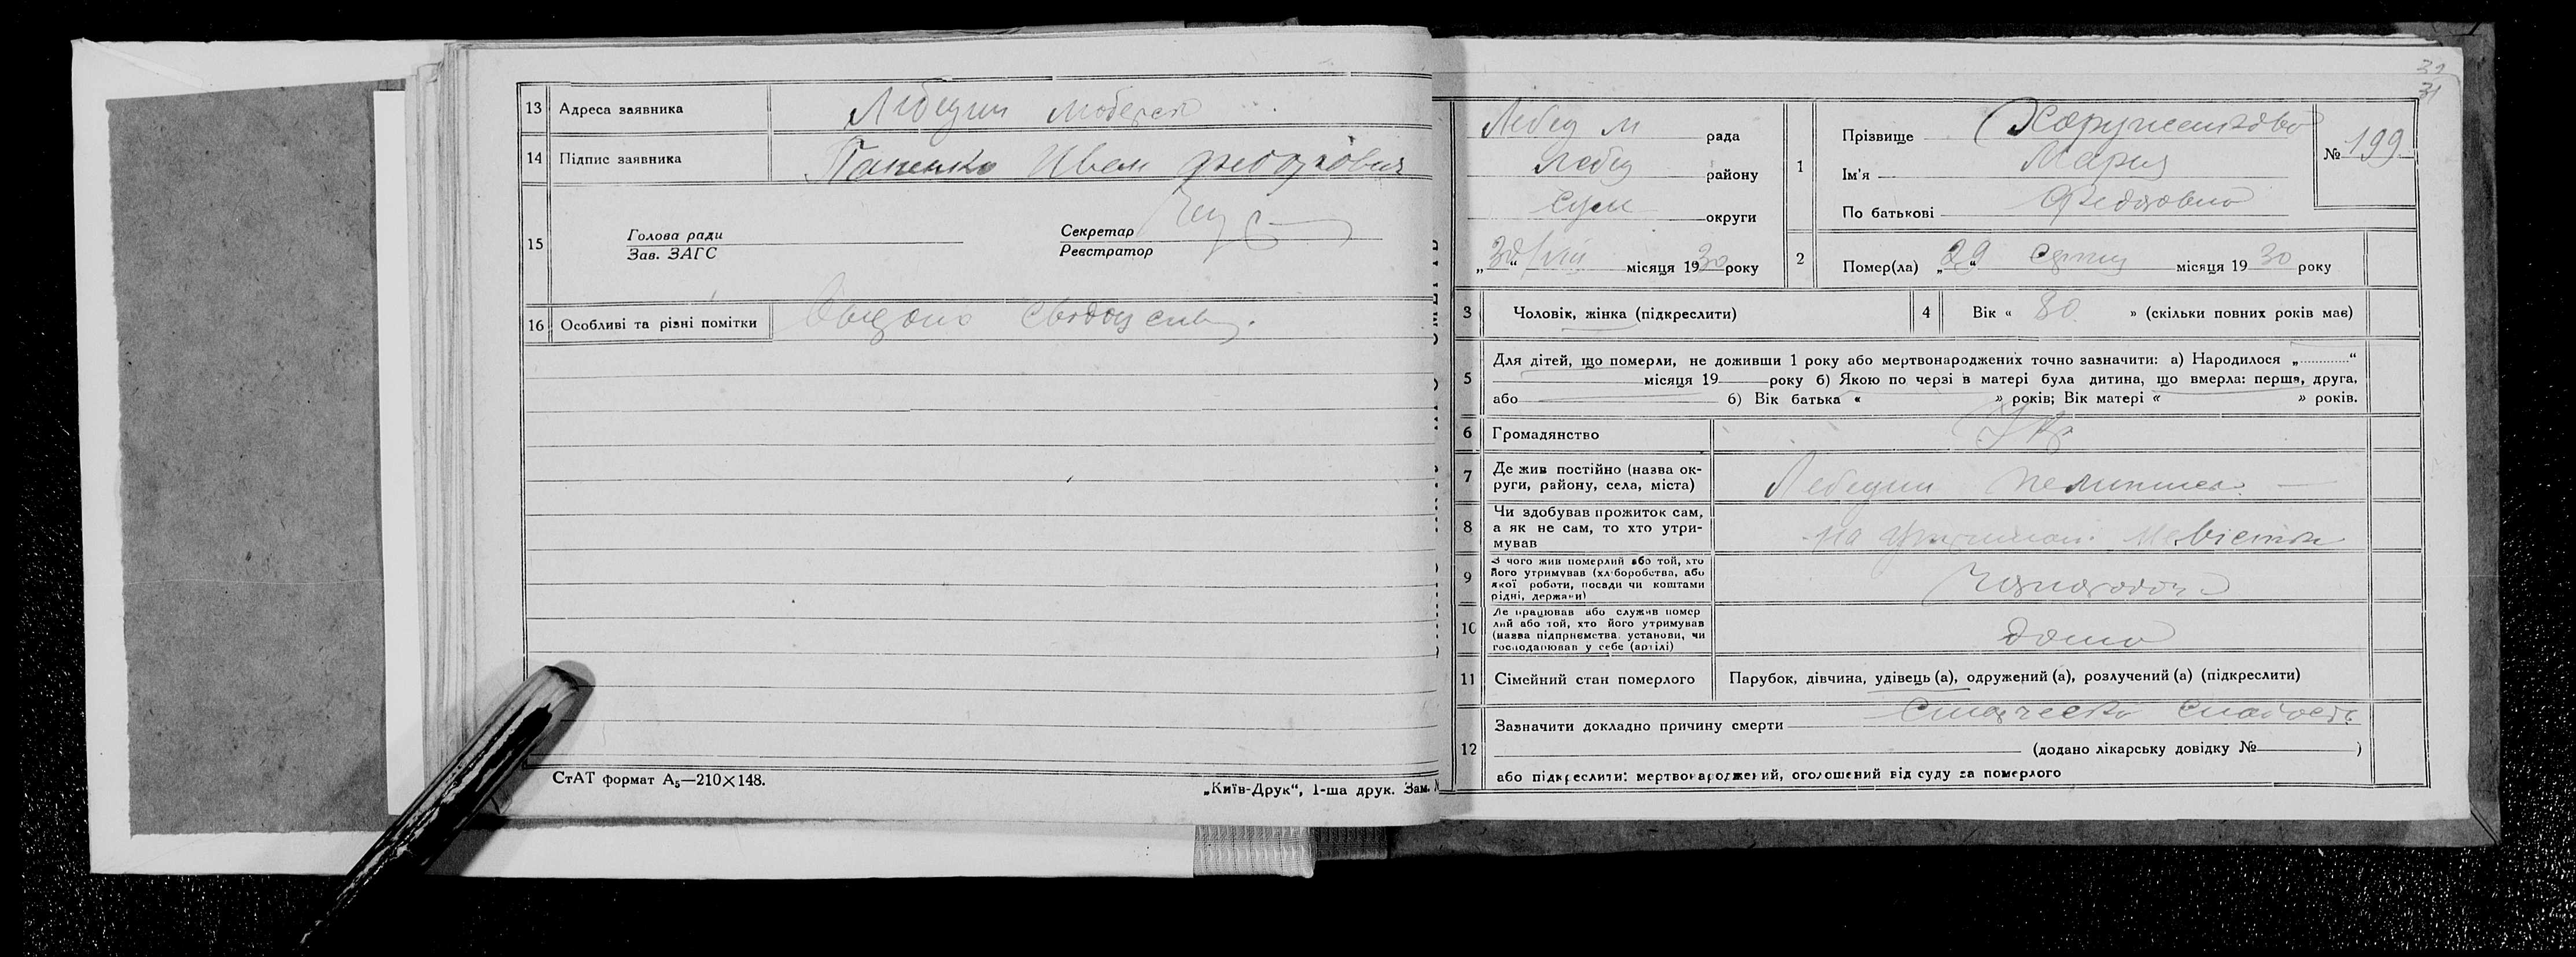 13 Адреса заявника Лебедин
14 Підпис заявника Папенко Иван Федорович
15 Голова ради
Зав. ЗАГС
Секретар
Реєстратор
16 Особливі та різні помітки
СтАТ формат А₅—210×148.
„Київ-Друк“, 1-ша друк. Зам.
31
31
Лебед м рада
Лебед району
Сум округи
„30“ VIII місяця 1930 року
1 Прізвище
Ім'я Мария
По батькові Федоровна
№ 199
2 Помер(ла) „29“ серпня місяця 1930 року
3 Чоловік, жінка (підкреслити)
4 Вік « 80 » (скільки повних років має)
5 Для дітей, що померли, не доживши 1 року або мертвонароджених точно зазначити: а) Народилося „............“
місяця 19 року б) Якою по черзі в матері була дитина, що вмерла: перша, друга,
або б) Вік батька « » років; Вік матері « » років.
6 Громадянство Укр
7 Де жив постійно (назва ок-
руги, району, села, міста) Лебедин
8 Чи здобував прожиток сам,
а як не сам, то хто утри-
мував на утриман. невістки
9 З чого жив померлий або той, хто
його утримував (хліборобства, або
якої роботи, посади чи коштами
рідні, держави)
10 Де працював або служив помер
лий або той, хто його утримував
(назва підприємства, установи, чи
господарював у себе (артілі) дома
11 Сімейний стан померлого Парубок, дівчина, удівець (а), одружений (а), розлучений (а) (підкреслити)
12 Зазначити докладно причину смерти Старческа слабость
(додано лікарську довідку № )
або підкреслити: мертвонароджений, оголошений від суду за померлого